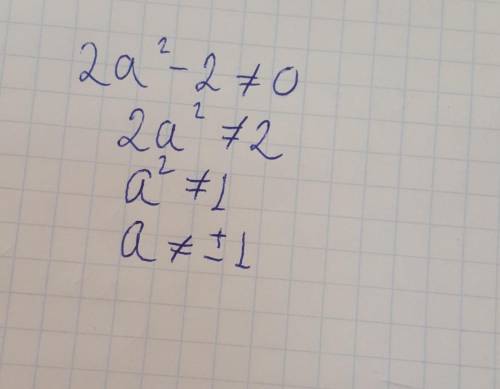 2a² - 2 ≠ 0
2a² ≠ 2
a² ≠ 1
a ≠ ± 1